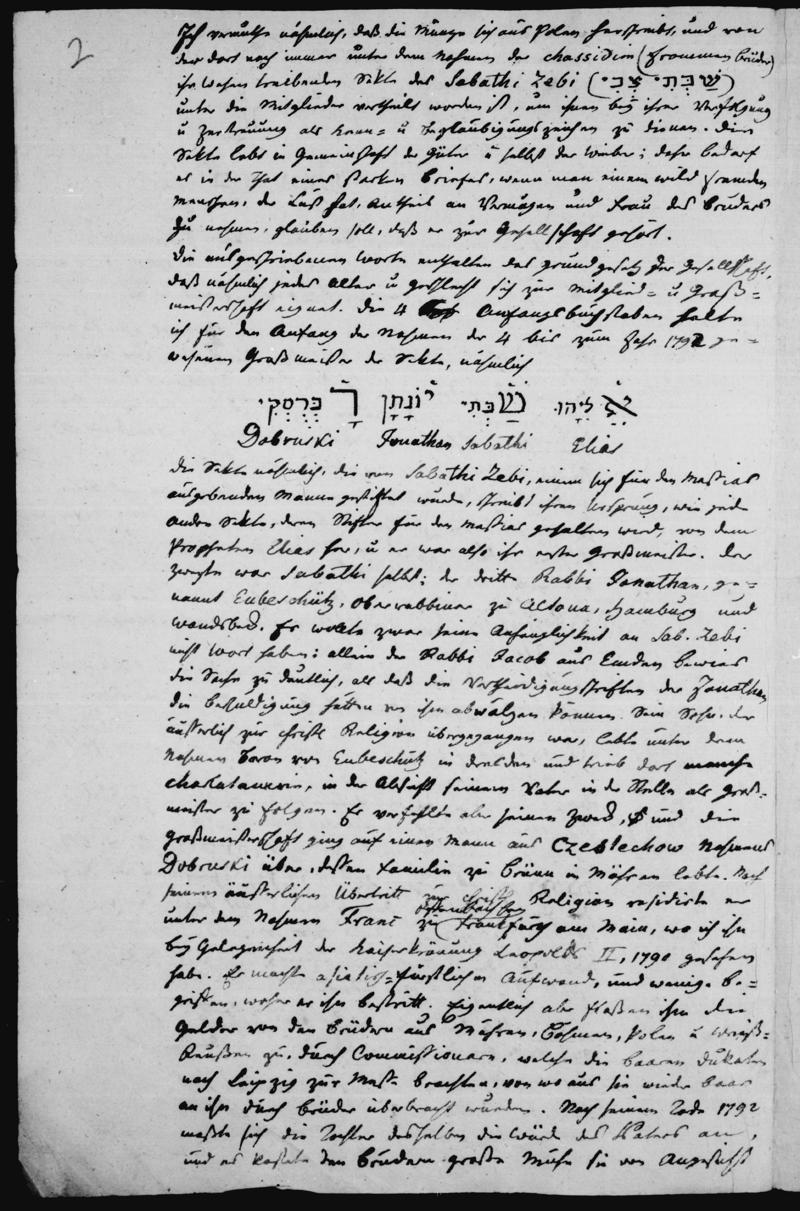 2
Ich vermuthe nähmlich, daß die Münze sich aus Polen herschreibt, und von
der dort noch immer unter dem Nahmen der chassidim (frommen Brüder)
ihr Wesen treibenden Sekte des Sabathi Zebi (שַׁבְּתַי צְבִי)
unter die Mitglieder vertheilt worden ist, um ihnen bey ihrer Verfolgung
u Zerstreuung als Kenn= u Beglaubigungszeichen zu dienen. Diese
Sekte lebt in Gemeinschaft der Güter u selbst der Weiber; daher bedarf
es in der That eines starken Briefes, wenn man einem wild fremden
Menschen, der Lust hat, Antheil an Vermögen und Frau des Bruders
zu nehmen, glauben soll, daß er zur Gesellschaft gehört.
Die ausgeschriebenen Worte enthalten das Grundgesetz der Gesellschaft,
daß nähmlich jedes Alter u Geschlecht sich zur Mitglied= u Groß=
meisterschaft eignet. Die 4 Anfangsbuchstaben halte
ich für den Anfang der Nahmen der 4 bis zum Jahr 1792 ge=
wesenen Großmeister der Sekte, nähmlich
אֵלִיָּהוּ שַׁבְּתַי יוֹנָתָן דָבְּרֻסְקִי
Dobruski Jonathan Sabathi Elias
Die Sekte nähmlich, die von Sabathi Zebi, einem sich für den Messias
ausgebenden Manne gestiftet wurde, schreibt ihren Ursprung, wie jede
andere Sekte, deren Stifter für den Messias gehalten wird, von dem
Propheten Elias her, u er war also ihr erster Großmeister. Der
zweyte war Sabathi selbst; der dritte Rabbi Jonathan, ge=
nannt Eubeschütz, Oberrabbiner zu Altona, Hamburg und
Wandsbeck. Er wollte zwar seine Anhänglichkeit an Sab. Zebi
nicht Wort haben; allein der Rabbi Jacob aus Emden bewies
die Sache zu deutlich, als daß die Vertheidigungsschriften des Jonathan
die Beschuldigung hätten von ihm abwälzen können. Sein Sohn, der
äusserlich zur christl Religion übergegangen war, lebte unter dem
Nahmen Baron von Eubeschütz in Dresden und trieb dort manche
Charlatanerie, in der Absicht seinem Vater in der Stelle als Groß=
meister zu folgen. Er verfehlte aber seinen Zweck, und die
Großmeisterschaft ging auf einen Mann aus Czestechow Nahmens
Dobruski über, dessen Familie zu Brünn in Mähren lebte. Nach
seinem äusserlichen Übertritt zur christl Religion residirte er
unter dem Nahmen Franc zu Offenbach bey Frankfurg am Main, wo ich ihn
bey Gelegenheit der Kaiserkrönung Leopolds II, 1790 gesehen
habe. Er machte asiatisch=fürstlichen Aufwand, und wenige be=
griffen, woher er ihn bestritt. Eigentlich aber floßen ihm die
Gelder von den Brüdern aus Mähren, Böhmen, Polen u Weiß=
Reußen zu, durch Commissionare, welche die baaren Dukaten
nach Leipzig zur Messe brachten, von wo aus sie wieder baar
an ihn durch Brüder überbracht wurden. Nach seinem Tode 1792
maßte sich die Tochter desselben die Würde des Vaters an,
und es kostete den Brüdern große Mühe sie von Angesicht